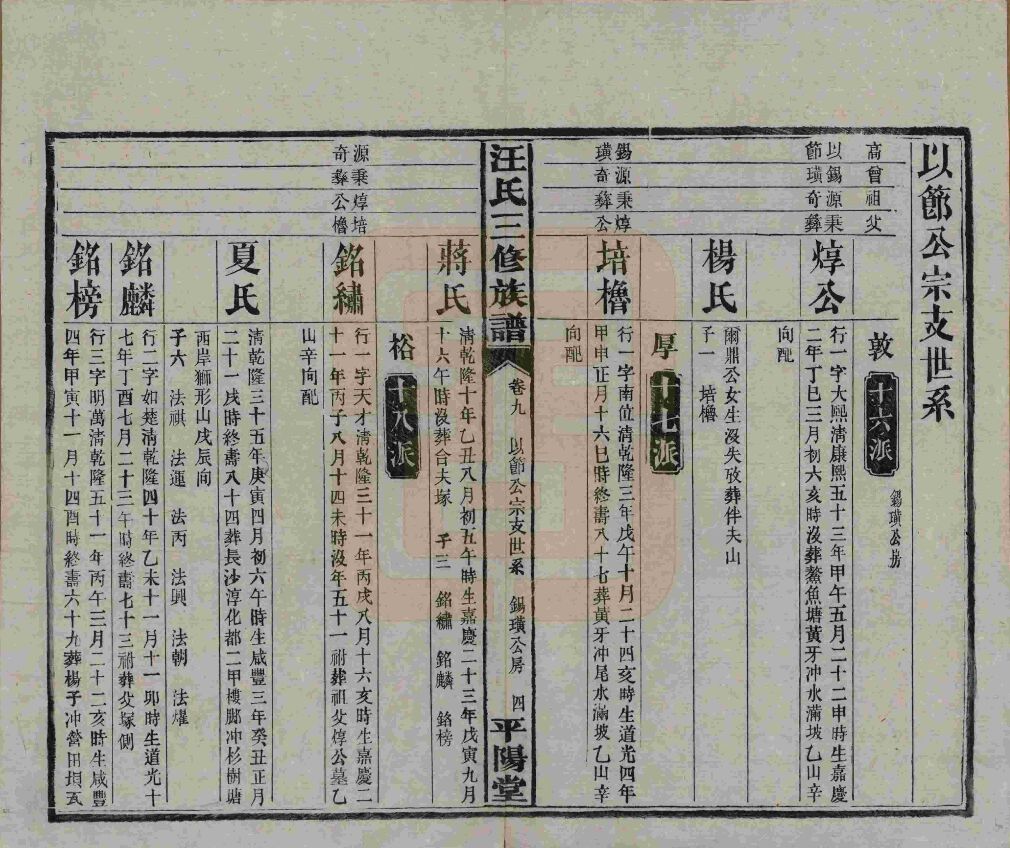 以節公宗支世系
高曾祖父
敦 十六派 錫璜公房
以錫源秉
節璜奇彝
焞公
行一字大熙清康熙五十三年甲午五月二十二申時生嘉慶
二年丁巳三月初六亥時沒葬鰲魚塘黃牙冲水滿坡乙山辛
向配
楊氏
爾鼎公女生沒失攷葬伴夫山
子一 培櫓
厚 十七派
錫源秉焞
璜奇彝公
培櫓
行一字南位清乾隆三年戊午十月二十四亥時生道光四年
甲申正月十六巳時終壽八十七葬黃牙冲尾水滿坡乙山辛
向配
汪氏三修族譜 卷九 以節公宗支世系 錫璜公房 四 平陽堂
蔣氏
清乾隆十年乙丑八月初五午時生嘉慶二十三年戊寅九月
十六午時沒葬合夫塚 子三 銘繡 銘麟 銘榜
裕 十八派
源秉焞培
奇彝公櫓
銘繡
行一字天才清乾隆三十一年丙戌八月十六亥時生嘉慶二
十一年丙子八月十四未時沒年五十一祔葬祖父焞公墓乙
山辛向配
夏氏
清乾隆三十五年庚寅四月初六午時生咸豐三年癸丑正月
二十一戌時終壽八十四葬長沙淳化都二甲樓腳冲杉樹塘
西岸獅形山戌辰向
子六 法祺 法運 法丙 法興 法朝 法燿
銘麟
行二字如楚清乾隆四十年乙未十一月十一卯時生道光十
七年丁酉七月二十三午時終壽七十三祔葬父塚側
銘榜
行三字明萬清乾隆五十一年丙午三月二十二亥時生咸豐
四年甲寅十一月十四酉時終壽六十九葬楊子冲營田垻亥